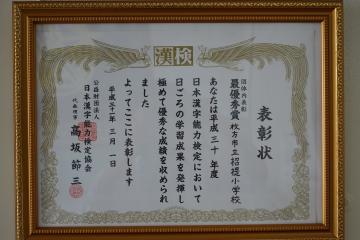 漢検
表彰状
団体内表彰
最優秀賞 枚方市立招提小学校
あなたは平成三十年度
日本漢字能力検定において
日ごろの学習成果を発揮し
極めて優秀な成績を収められ
ました
よってここに表彰します
平成三十一年 三月 一日
公益財団法人
日本漢字能力検定協会
代表理事 高坂節三